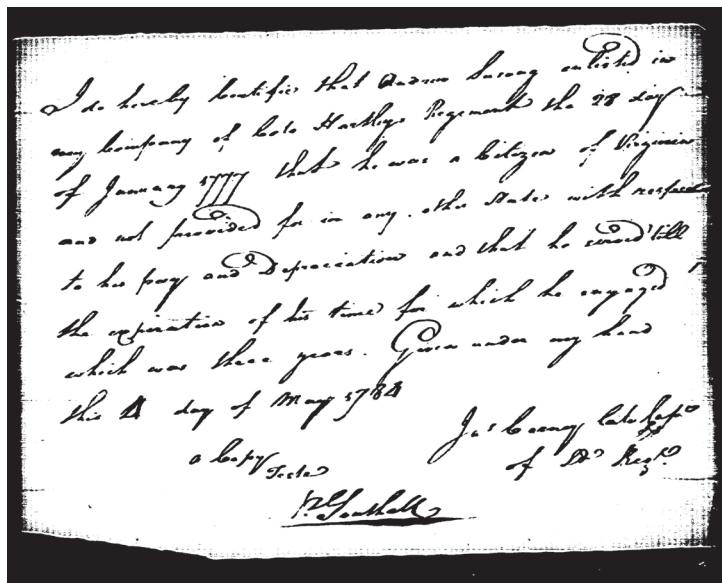 I do hereby Certifie that Andrew Susong enlisted in
my Company of Colo Hartleys Regement the 28 day
of January 1777 that he was a Citizen of Virginia
and not provided for in any other State with respect
to his pay and Depreciation and that he served till
the expiration of his time for which he engaged
which was three years. Given under my hand
this 4 day of May 1784
Jas Carney late Capt
of sd Regt.
a Copy
Teste
Southall